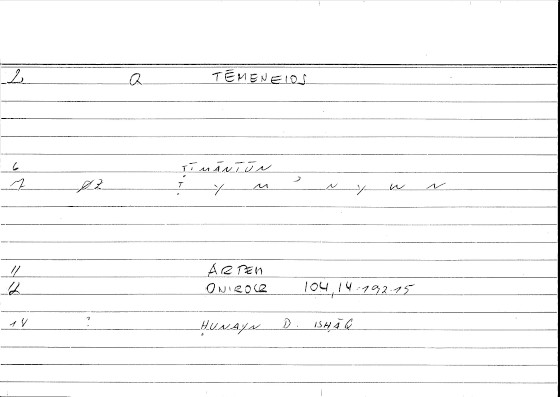 2. Q TĒMENEIOS
6 ṬĪMĀNIŪN
7 ØZ Ṭ Y M ʾ N Y W N
11 ARTEM
12 ONIROCR 104,14-192.15
14 ? ḤUNAYN D. ISḤĀQ